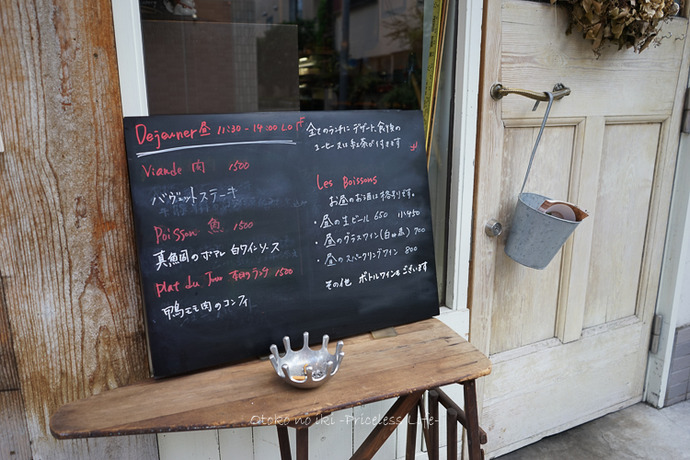 Dejeuner 昼 11:30 - 14:00 LO
Viande 肉 1500
バヴェットステーキ
Poisson 魚 1500
真魚園のポアレ 白ワインソース
Plat du Jour 本日のランチ 1500
鴨モモ肉のコンフィ
全てのランチに デザート、食後の
コーヒー又は紅茶が付きます
Les Boissons
お昼のお酒は格別です。
・昼の生ビール 650 小450
・昼のグラスワイン(白or赤) 700
・昼のスパークリングワイン 800
その他 ボトルワインもございます
Otoko no iki -Priceless Life-